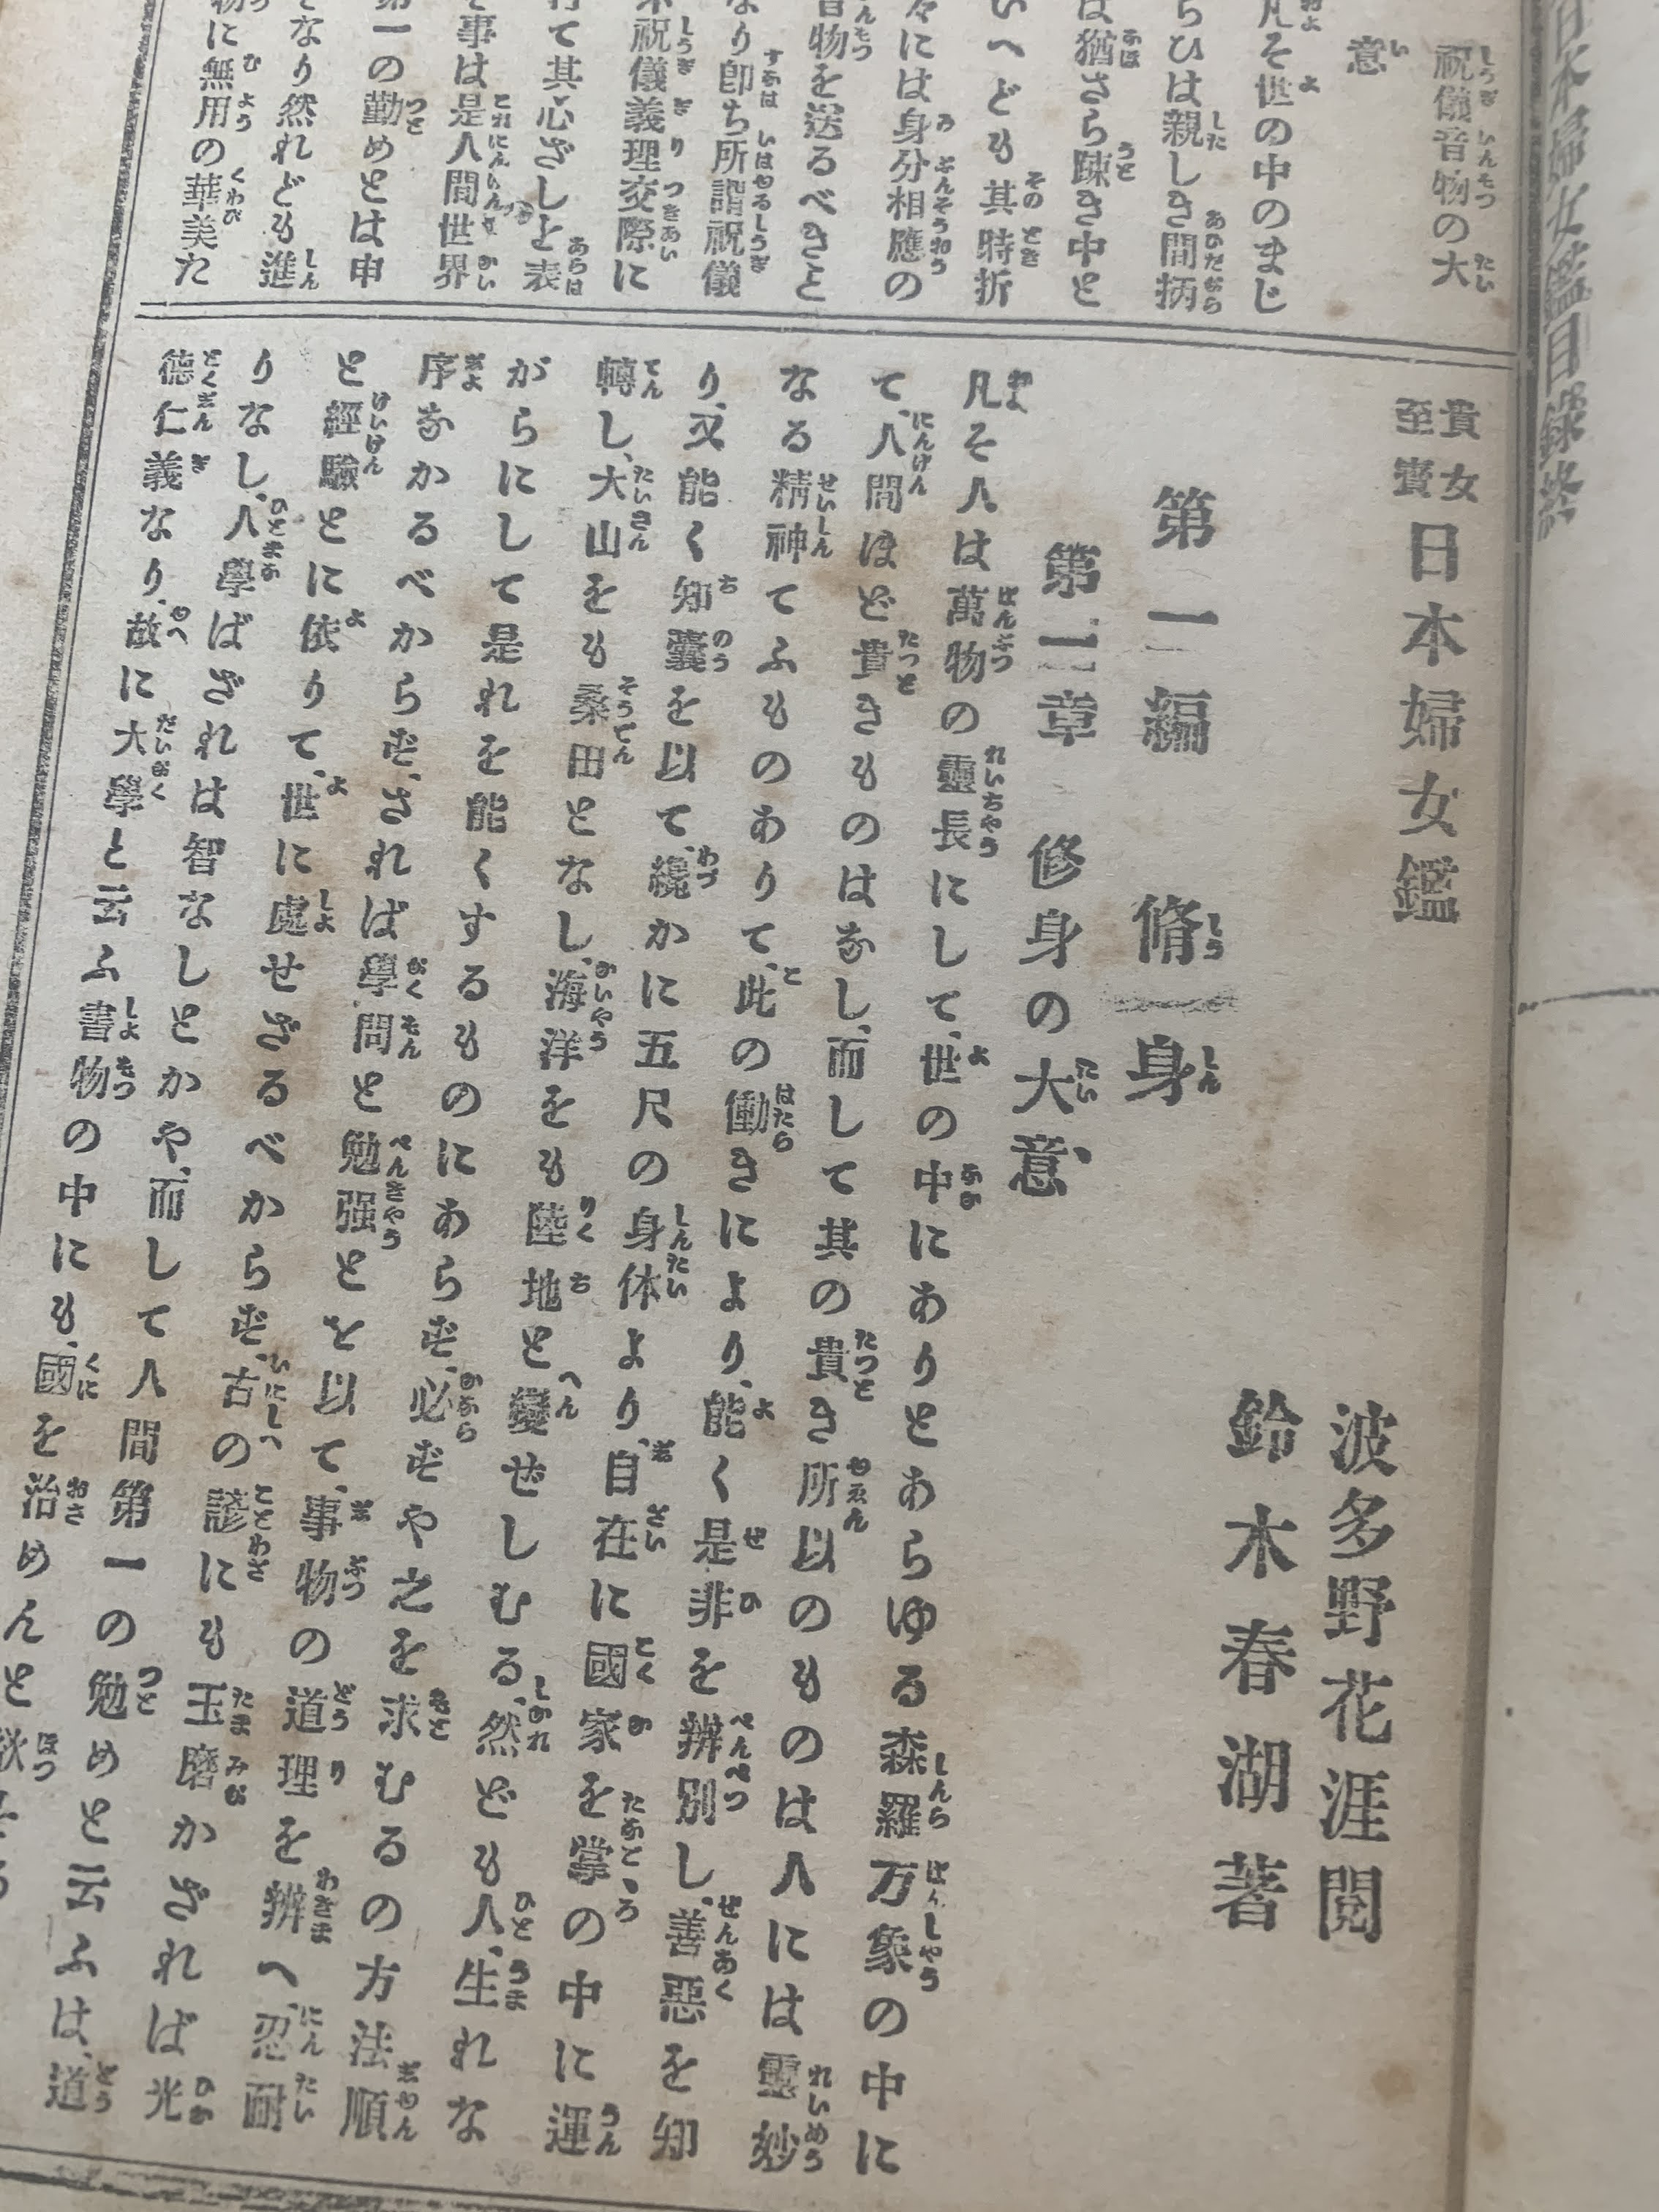 日本婦女鑑目錄終
祝儀音物の大
意
凡そ世の中のまじ
らひは親しき間柄
は猶さら踈き中と
いへども其時折
々には身分相應の
音物を送るべきと
なり卽ち所謂祝儀
祝儀義理交際に
て其心ざしを表
事は是人間世界
第一の勤めとは申
なり然れども進
物に無用の華美た
貴女至寶 日本婦女鑑
波多野花涯閱
鈴木春湖著
第一編 脩身
第一章 修身の大意
凡そ人は萬物の靈長にして、世の中にありとあらゆる森羅万象の中に
て、人間ほど貴きものはなし、而して其の貴き所以のものは人には靈妙
なる精神てふものありて、此の働きにより、能く是非を辨別し、善惡を知
り、又能く知囊を以て、纔かに五尺の身体より、自在に國家を掌の中に運
轉し、大山をも桑田となし、海洋をも陸地と變ぜしむる、然ども人、生れな
がらにして是れを能くするものにあらず、必ずや之を求むるの方法順
序なかるべからず、されば學問と勉强とを以て、事物の道理を辨へ、忍耐
と經驗とに依りて、世に處せざるべからず、古の諺にも玉磨かざれば光
りなし、人學ばざれは智なしとかや、而して人間第一の勉めと云ふは、道
德仁義なり、故に大學と云ふ書物の中にも、國を治めんと欲